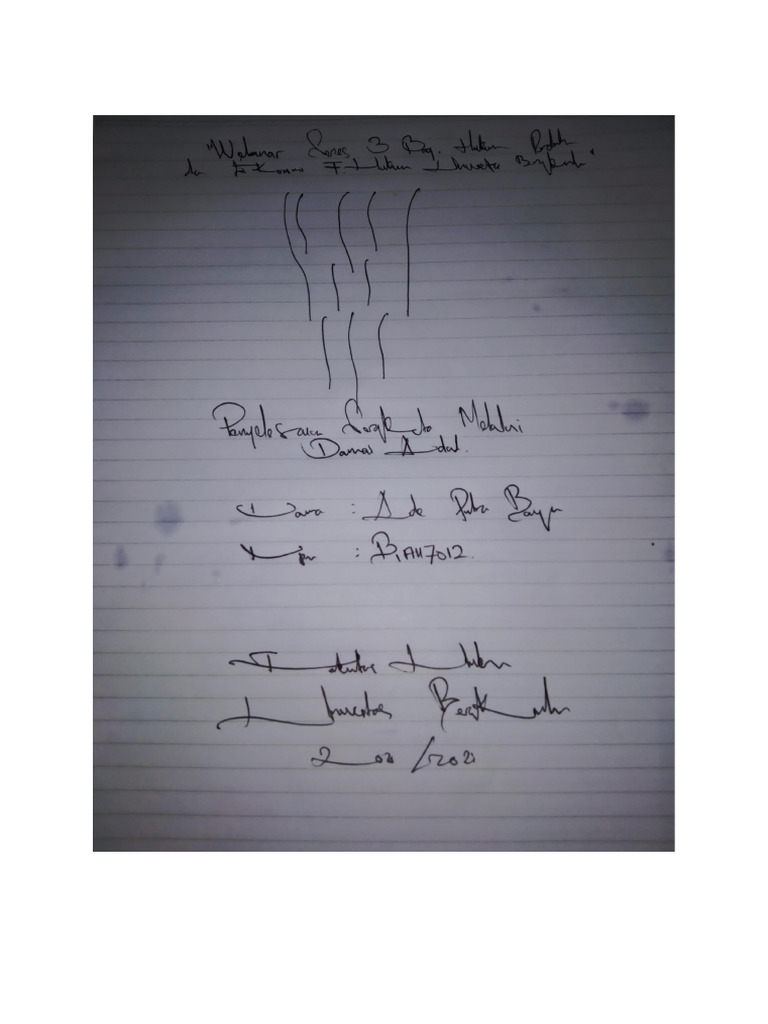 "Webinar Series 3 Bag. Hukum Perdata
dan Ekonomi F. Hukum Universitas Bengkulu"
Penyelesaian Sengketa Melalui
Damai Adat.
Nama : Ade Putra Bayu
Npm : B1A117012.
Fakultas Hukum
Universitas Bengkulu
2020/2021